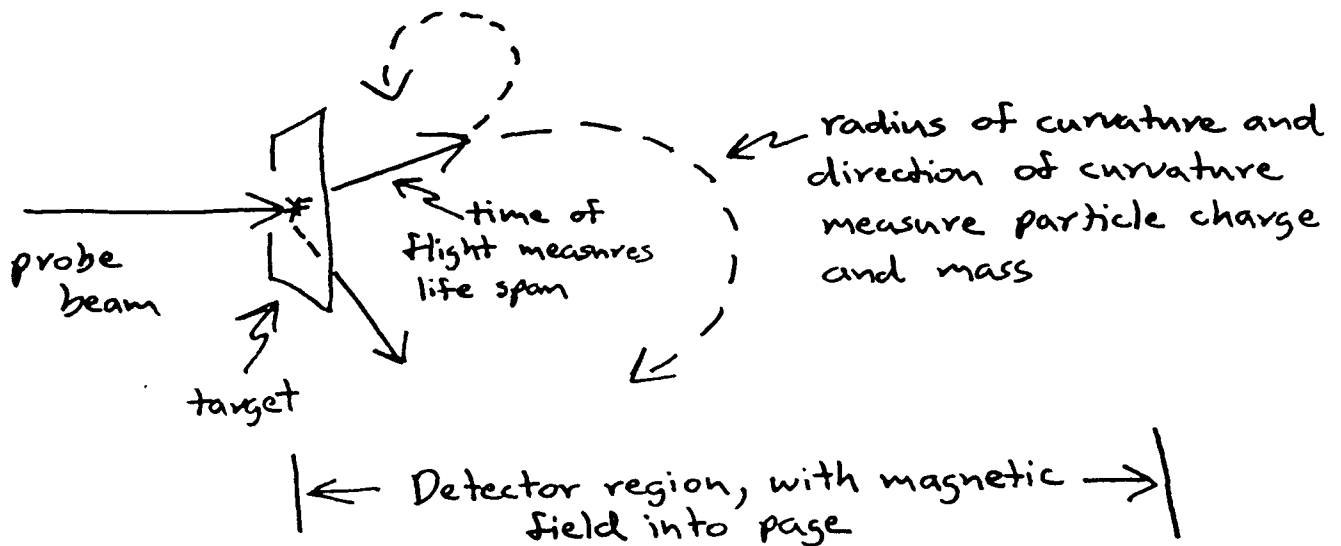 probe
beam
target
time of
flight measures
life span
radius of curvature and
direction of curvature
measure particle charge
and mass
Detector region, with magnetic
field into page